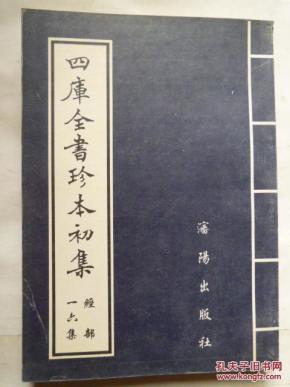 四庫全書珍本初集
經部
一六集
瀋陽出版社
孔夫子旧书网